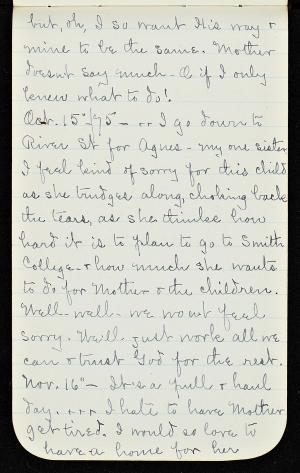 but, oh, I so want His way &
mine to be the same. Mother
doesn't say much - O if I only
knew what to do!
Oct. 15"/95 - .. I go down to
River St for Agnes - my one sister
I feel kind of sorry for this child
as she trudges along, choking back
the tears, as she thinks how
hard it is to plan to go to Smith
College - & how much she wants
to do for Mother & the children.
Well - well - we won't feel
sorry. We'll just work all we
can & trust God for the rest.
Nov. 16" - It's a pull & haul
day. ... I hate to have Mother
get tired. I would so love to
have a home for her